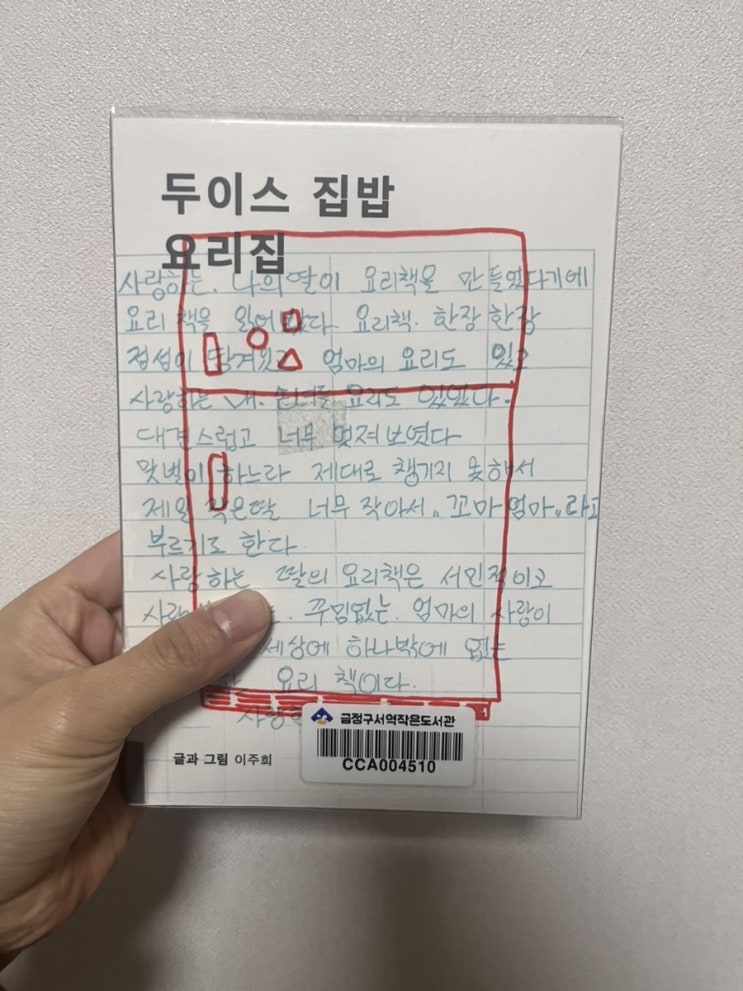 두이스 집밥
요리집
사랑하는. 나의딸이 요리책을 만들었다기에
요리책을 읽어 봤다. 요리책. 한장 한장
정성이 담겨있고 엄마의 요리도 있고
사랑하는 내. 손녀들 요리도 있었다.
대견스럽고 너무 멋져보였다
맞벌이 하느라 제대로 챙기지 못해서
제일 작은딸 너무 작아서 "꼬마 엄마" 라고
부르기도 한다
사랑하는 딸의 요리책은 서민적이고
꾸밈없는. 엄마의 사랑이
세상에 하나밖에 없는
요리 책이다.
금정구서역작은도서관
CCA004510
글과 그림 이주희